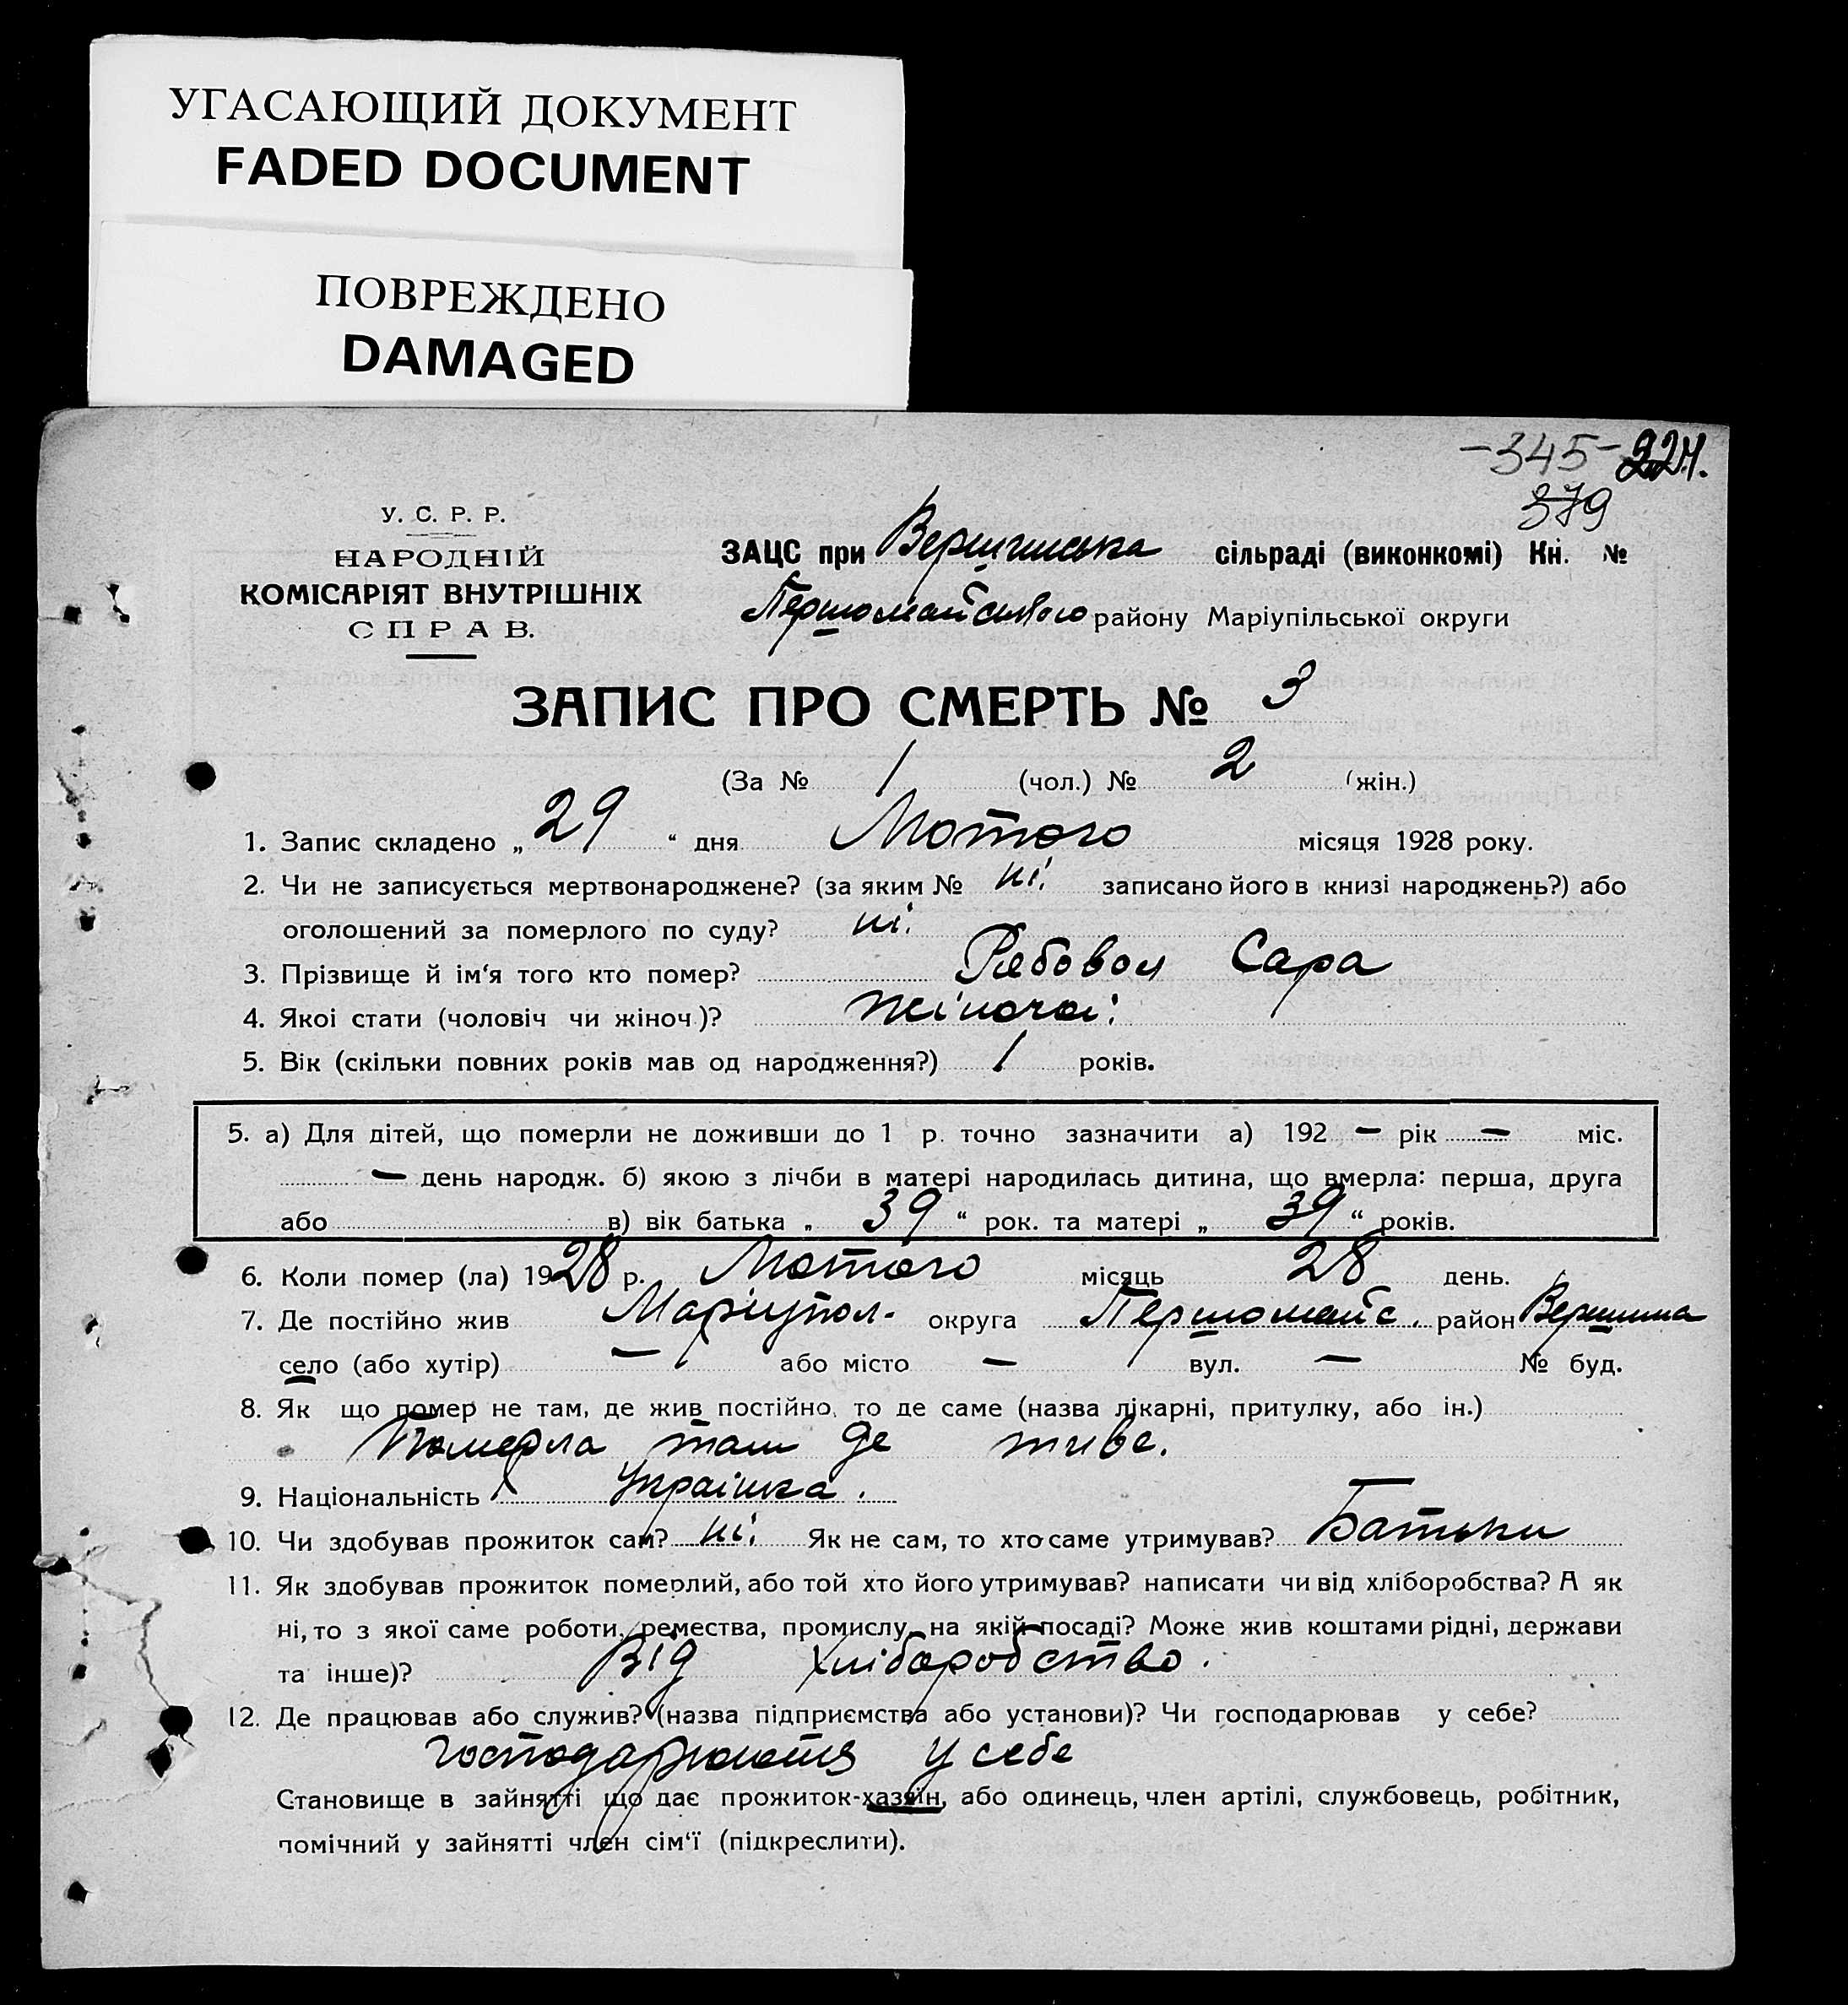 УГАСАЮЩИЙ ДОКУМЕНТ
FADED DOCUMENT
ПОВРЕЖДЕНО
DAMAGED
-345- 324.
379
У. С. Р. Р.
НАРОДНІЙ
КОМІСАРІЯТ ВНУТРІШНІХ
СПРАВ.
ЗАЦС при Вершинська сільраді (виконкомі) Кн. №
Першомайського району Маріупільської округи
ЗАПИС ПРО СМЕРТЬ № 3
(За № 1 (чол.) № 2 (жін.)
1. Запис складено „ 29 “ дня Лютого місяця 1928 року.
2. Чи не записується мертвонароджене? (за яким № ні. записано його в книзі народжень?) або
оголошений за померлого по суду? ні.
3. Прізвище й ім‘я того кто помер? Рябовол Сара
4. Якоі стати (чоловіч чи жіноч.)? жіночоі
5. Вік (скільки повних років мав од народження?) 1 років.
5. а) Для дітей, що померли не доживши до 1 р. точно зазначити а) 192 — рік — міс.
— день народж. б) якою з лічби в матері народилась дитина, що вмерла: перша, друга
або в) вік батька „ 39 “ рок. та матері „ 39 “ років.
6. Коли помер (ла) 1928 р. Лютого місяць 28 день.
7. Де постійно жив Маріупол. округа Першомайс. район Вершина
село (або хутір) — або місто — вул. — № буд.
8. Як що помер не там, де жив постійно, то де саме (назва лікарні, притулку, або ін.)
Померла там де живе.
9. Національність Украінка.
10. Чи здобував прожиток сам? ні. Як не сам, то хто саме утримував? Батьки
11. Як здобував прожиток померлий, або той хто його утримував? написати чи від хліборобства? А як
ні, то з якої саме роботи, ремества, промислу, на якій посаді? Може жив коштами рідні, держави
та інше)? Від хліборобство.
12. Де працював або служив? (назва підприємства або установи)? Чи господарював у себе?
господарюють у себе
Становище в зайнятті що дає прожиток-хазяїн, або одинець, член артілі, службовець, робітник,
помічний у зайнятті член сім‘ї (підкреслити).